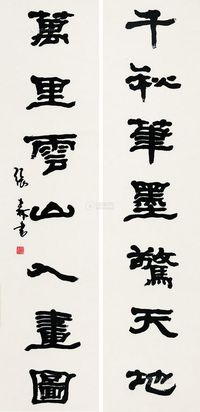 千秋筆墨驚天地
萬里雲山入畫圖
張森書